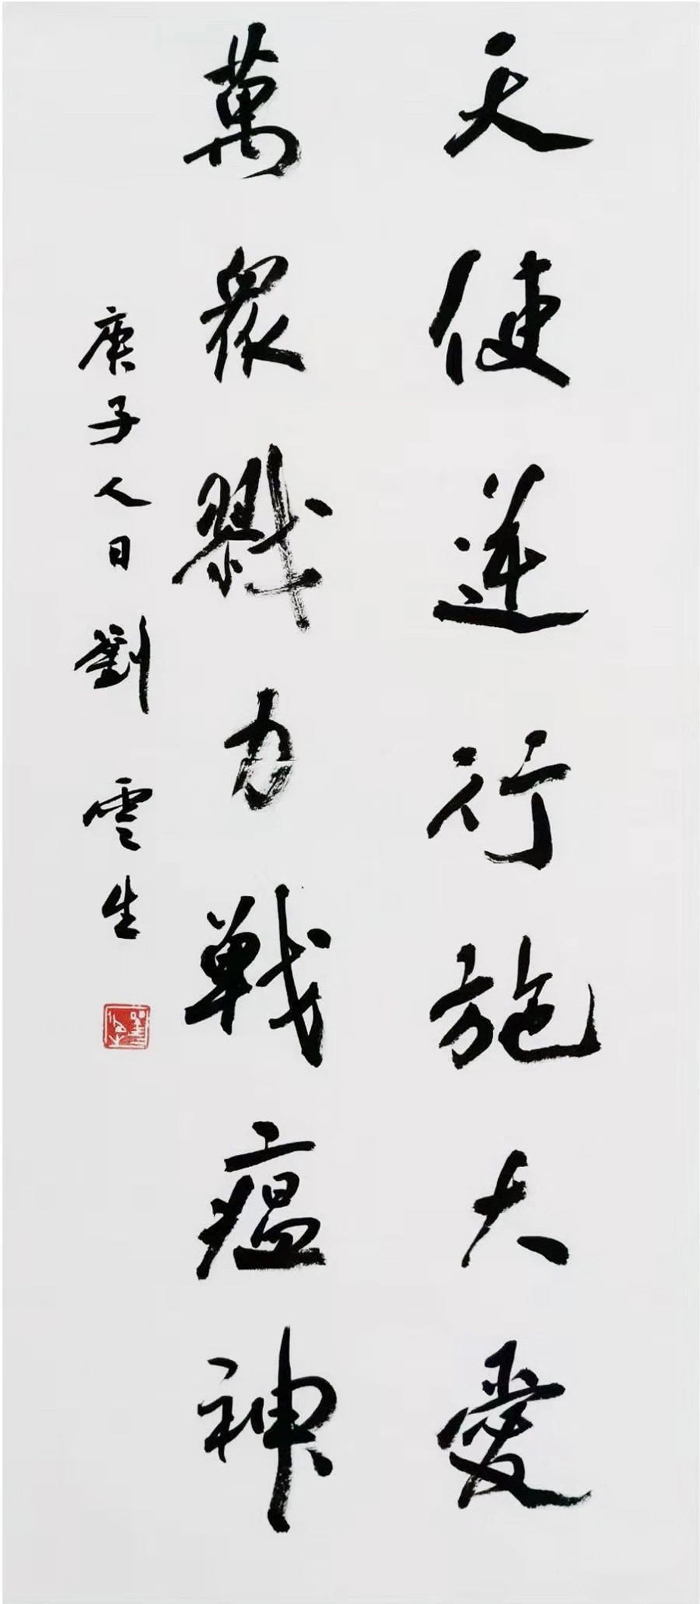 天使逆行施大愛
萬眾戮力戰瘟神
庚子人日劉雲生